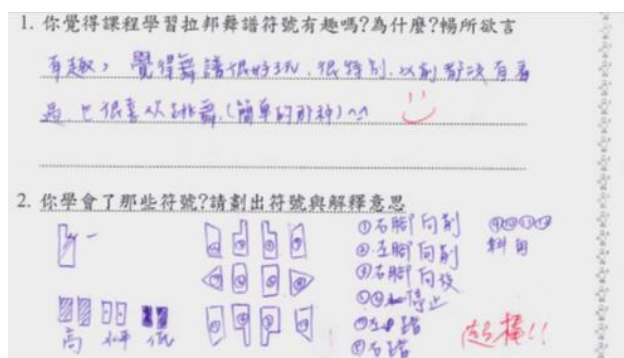 1. 你覺得課程學習拉邦舞譜符號有趣嗎?為什麼?暢所欲言
有趣,覺得舞譜很好玩,很特別,以前都沒有看
過,也很喜歡跳舞,(簡單的那種)^^
2. 你學會了那些符號?請劃出符號與解釋意思
①右腳向前
②左腳向前
③右腳向後
停止
右踏
斜角
高 水平 低
超棒!!